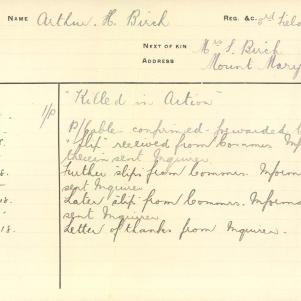 NAME Arthur. H. Birch REG. &C. 3rd Field
NEXT OF KIN Mrs S. Birch
ADDRESS Mount Mary
I/P "Killed in Action"
P/Cable confirmed - forwarded
"Slip" received from Commrs. Inform
therein sent Inquirer
8. Further "slip" from Commrs. Inform
sent Inquirer
18. Later "slip" from Commrs. Informa
sent Inquirer
18. Letter of thanks from Inquirer.